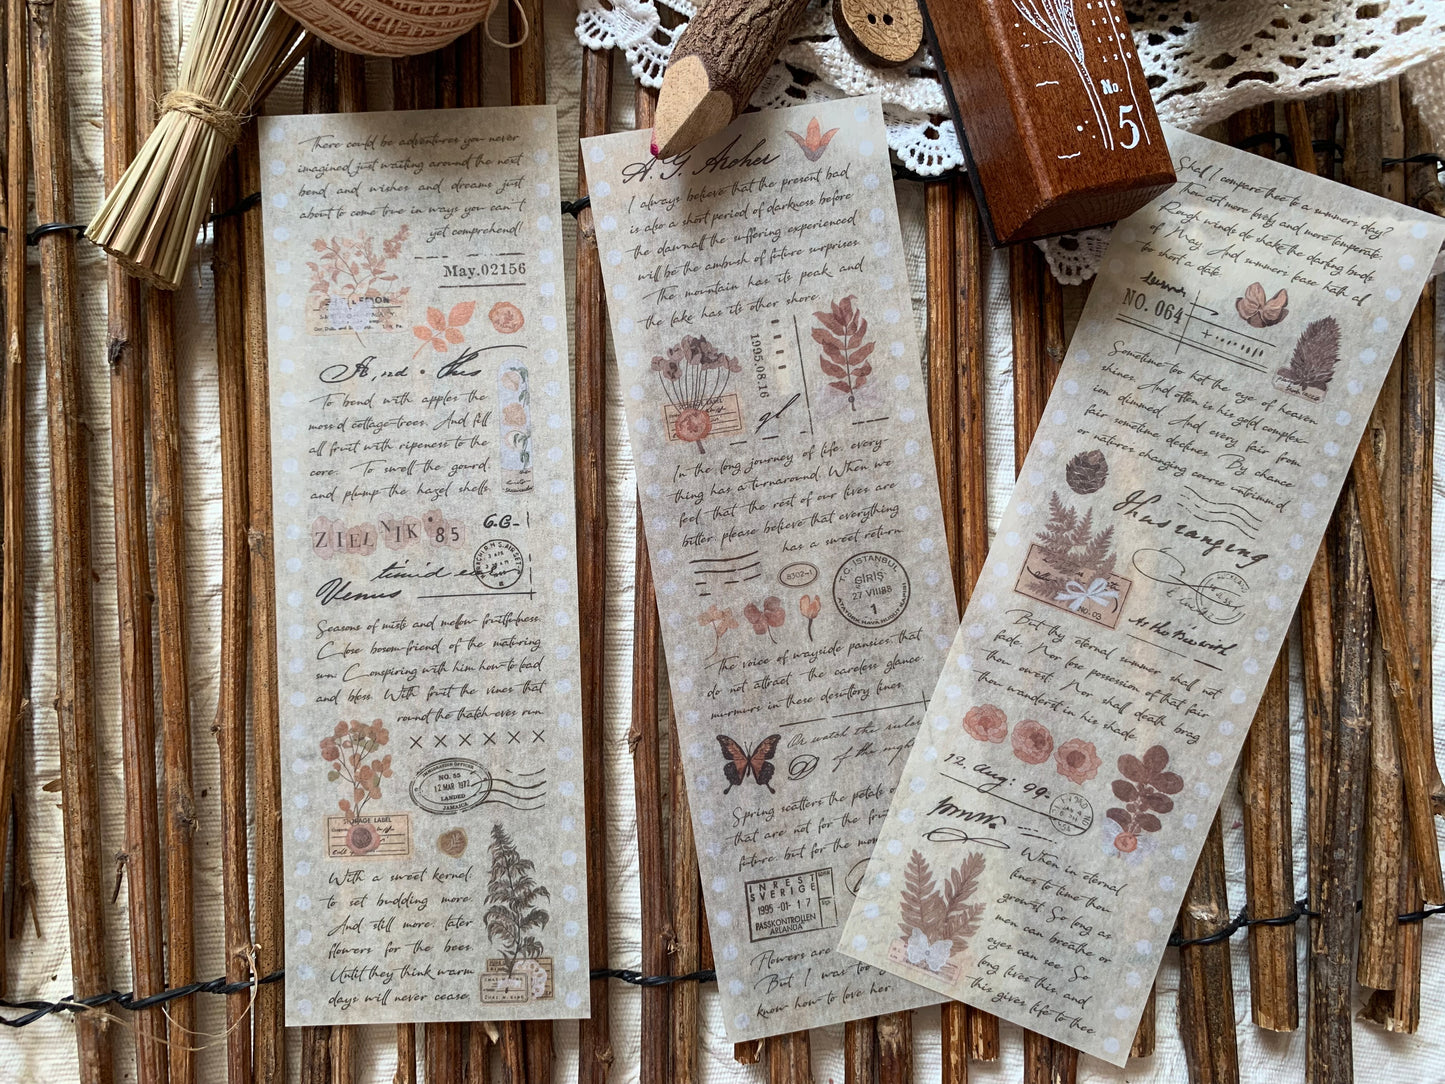 There could be adventures you never
imagined just waiting around the next
bend and wishes and dreams just
about to come true in ways you can't
yet comprehend!
May.02156
And this
To bend with apples the
moss'd cottage-trees. And fill
all fruit with ripeness to the
core. To swell the gourd.
and plump the hazel shells
ZIELNIK '85
G.G-1
timid
Venus
Seasons of mists and mellow fruitfulness.
Close bosom-friend of the maturing
sun: Conspiring with him how to load
and bless. With fruit the vines that
round the thatch-eves run
× × × × × ×
IMMIGRATION OFFICER
NO. 55
12 MAR 1972
LANDED
JAMAICA
STORAGE LABEL
With a sweet kernel:
to set budding more.
And still more, later
flowers for the bees.
Until they think warm
days will never cease.
A. G. Archer
I always believe that the present bad
is also a short period of darkness before
the dawn.all the suffering experienced
will be the ambush of future surprises.
The mountain has its peak, and
the lake has its other shore.
1995.08.16
In the long journey of life, every
thing has a turnaround. When we
feel that the rest of our lives are
bitter, please believe that everything
has a sweet return.
8302-1
T.C. İSTANBUL
GİRİŞ
27 VIII 88
1
ATATÜRK HAVA HUDUT KAPISI
The voice of wayside pansies. that
do not attract the careless glance
murmurs in these desultory lines
Or watch the rules
of the night
Spring scatters the petals of
that are not for the
future. but for the
INREST
SVERIGE
1995 -01- 1 7
PASSKONTROLLEN
ARLANDA
Flowers are
But I was too
know how to love her.
No.
5
Shall I compare thee to a summer's day?
Thou art more lovely and more temperate:
Rough winds do shake the darling buds
of May. And summer's lease hath all
too short a date:
NO. 064
Sometime too hot the eye of heaven
shines. And often is his gold complex-
ion dimmed. And every fair from
fair sometime declines. By chance
or nature's changing course untrimm'd
Thus ranging
NO.03
As the Bee with
But thy eternal summer shall not
fade. Nor lose possession of that fair
thou owest. Nor shall death brag
thou wanderst in his shade.
12. Aug: 99-
When in eternal
lines to time thou
growest. So long as
men can breathe or
eyes can see. So
long lives this, and
this gives life to thee.